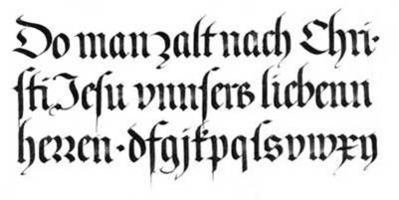 Do man zalt nach Chri-
sti Jesu vnnsers liebenn
herren · dfgjkpqlsvwxy